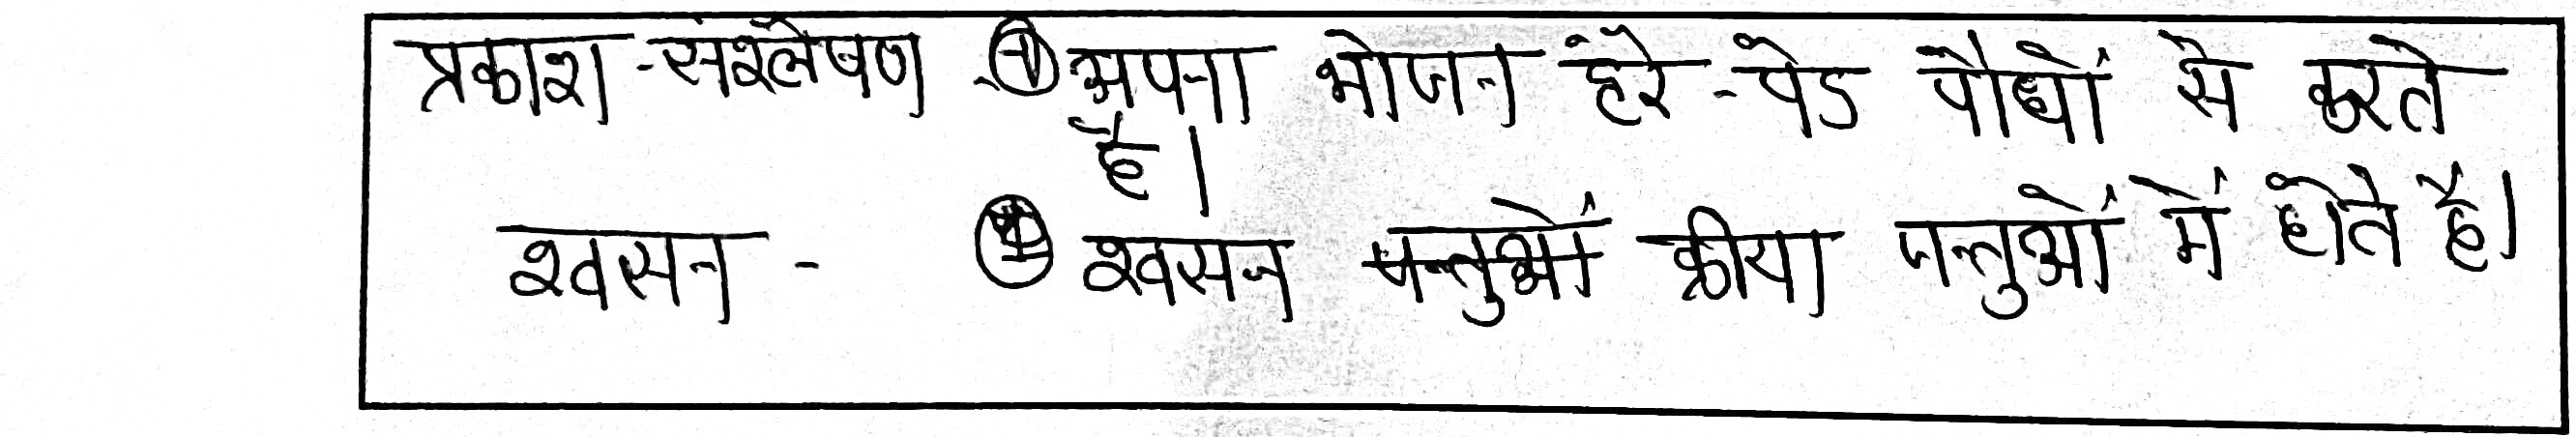 प्रकाश - संश्लेषण ① अपना भोजन हरे - पेड पौधों से करते
है।
श्वसन - ② श्वसन जन्तुओं क्रीया जन्तुओं में होते है।